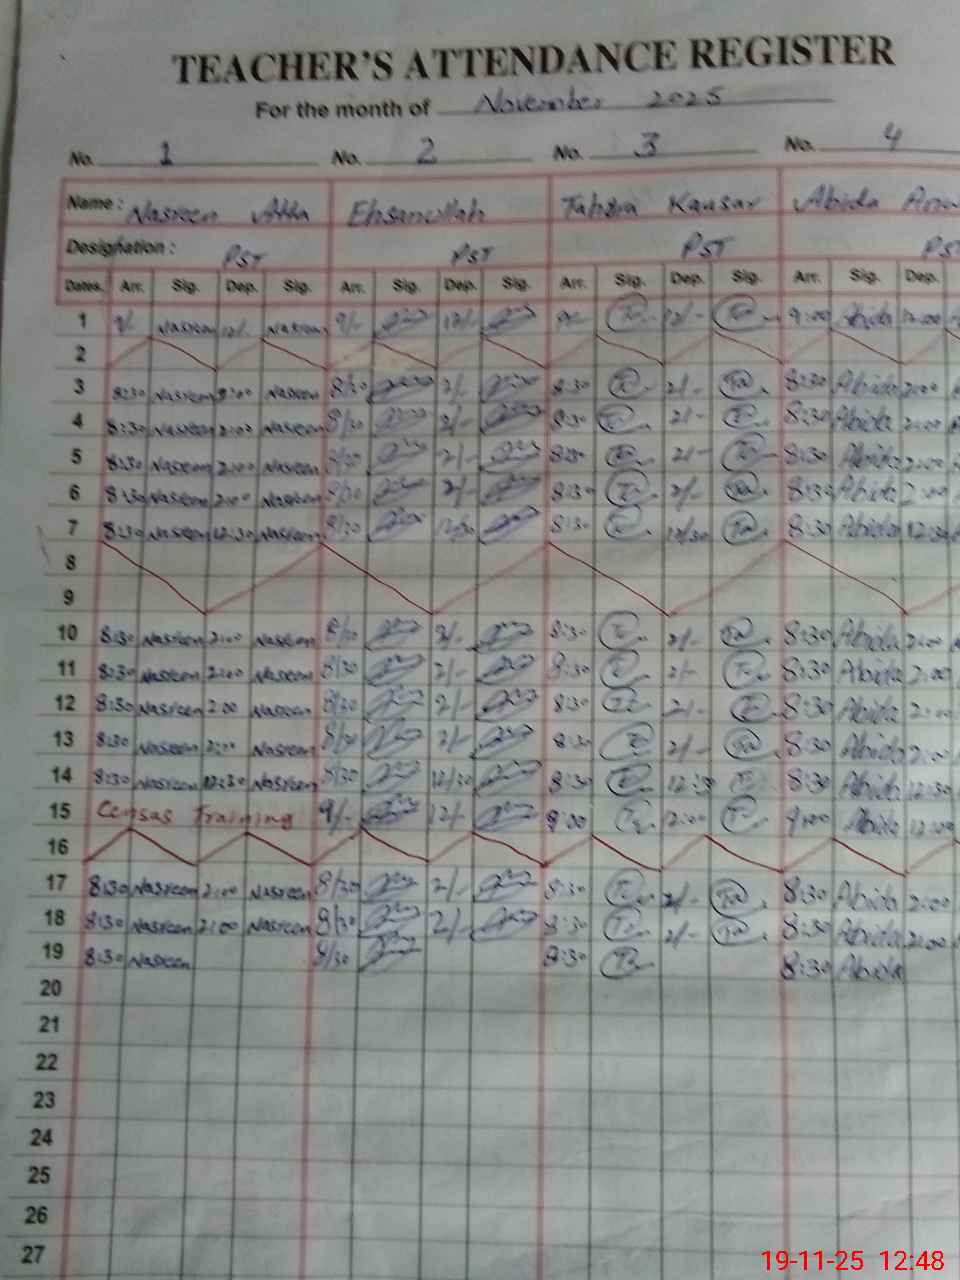 TEACHER'S ATTENDANCE REGISTER
For the month of November 2025
No. 1 No. 2 No. 3 No. 4
Name : Nasreen Ehsanullah Tahira Kausar Abida
Designation : PST PST PST PST
Dates. Arr. Sig. Dep. Sig. Arr. Sig. Dep. Sig. Arr. Sig. Dep. Sig. Arr. Sig. Dep.
1 9/- Nasreen 12/- Nasreen 9/- 12/- 9/- 12/- 9:00 Abida 12:00
2
3 8:30 Nasreen 2:00 Nasreen 8/30 2/- 8:30 2/- 8:30 Abida 2:00
4 8:30 Nasreen 2:00 Nasreen 8/30 2/- 8:30 2/- 8:30 Abida 2:00
5 8:30 Nasreen 2:00 Nasreen 8/30 2/- 8:30 2/- 8:30 Abida 2:00
6 8:30 Nasreen 2:00 Nasreen 8/30 2/- 8:30 2/- 8:30 Abida 2:00
7 8:30 Nasreen 12:30 Nasreen 8/30 12/30 8:30 12/30 8:30 Abida 12:30
8
9
10 8:30 Nasreen 2:00 Nasreen 8/30 2/- 8:30 2/- 8:30 Abida 2:00
11 8:30 Nasreen 2:00 Nasreen 8/30 2/- 8:30 2/- 8:30 Abida 2:00
12 8:30 Nasreen 2:00 Nasreen 8/30 2/- 8:30 2/- 8:30 Abida 2:00
13 8:30 Nasreen 2:00 Nasreen 8/30 2/- 8:30 2/- 8:30 Abida 2:00
14 8:30 Nasreen 12:30 Nasreen 8/30 12/30 8:30 12:30 8:30 Abida 12:30
15 Censas Training 9/- 12/- 9:00 12:00 9:00 Abida 12:00
16
17 8:30 Nasreen 2:00 Nasreen 8/30 2/- 8:30 2/- 8:30 Abida 2:00
18 8:30 Nasreen 2:00 Nasreen 8/30 2/- 8:30 2/- 8:30 Abida 2:00
19 8:30 Nasreen 8/30 8:30 8:30 Abida
20
21
22
23
24
25
26
27
19-11-25 12:48